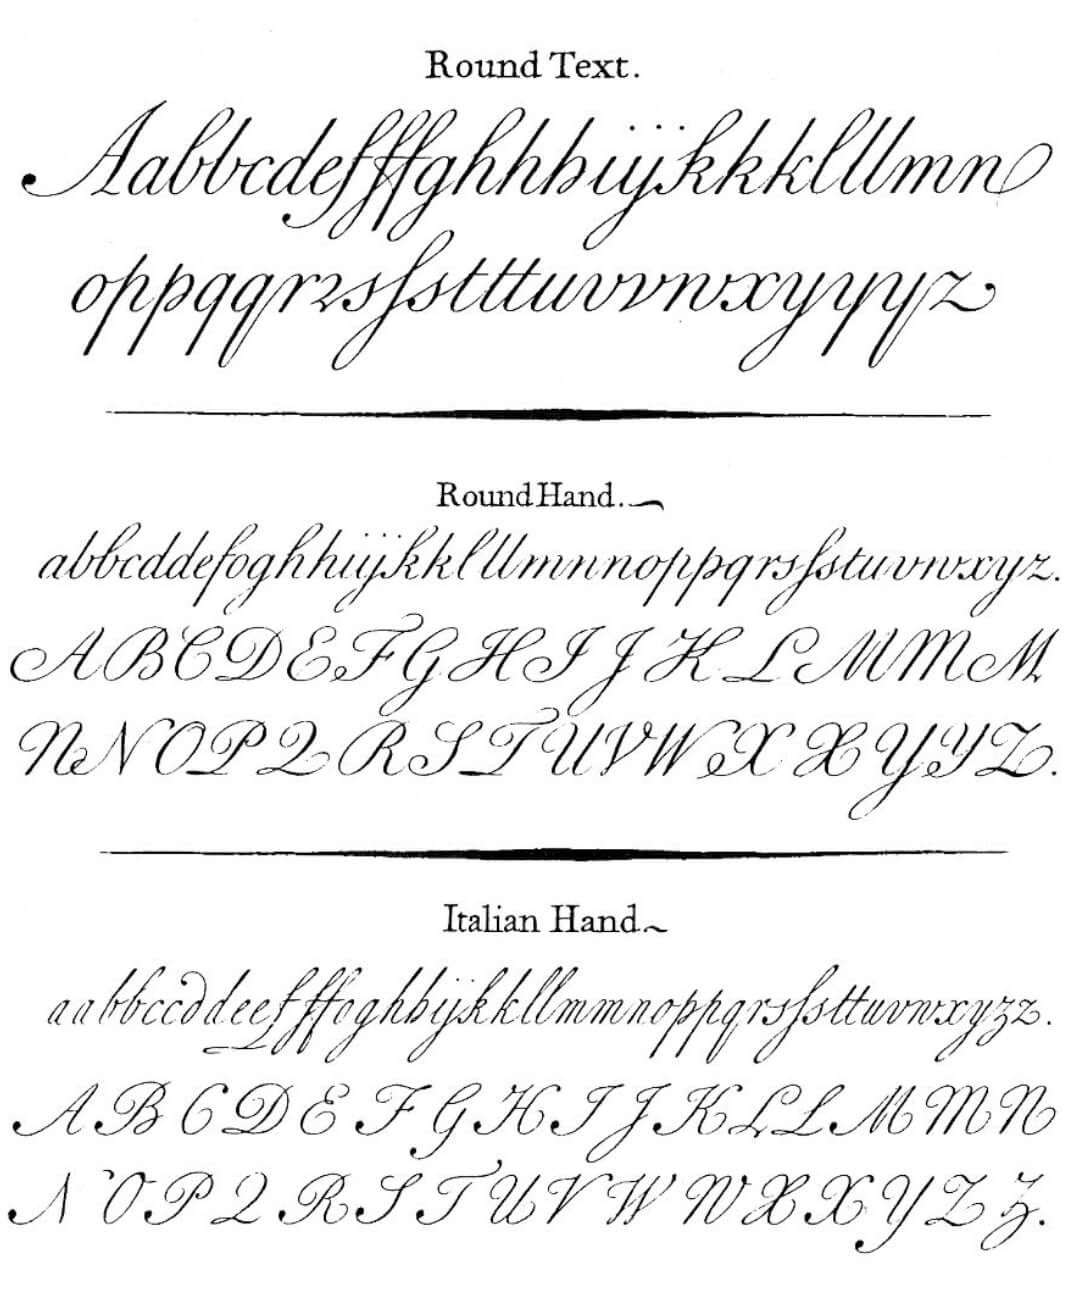 Round Text.
Aabbcdefffghhhiijkkklllmn
oppqqrrsſsttuvvwxyyyz
Round Hand.
abbcddefoghhiijkklllmnnoppqrsſstuvwxyz.
ABCDEFGHIJKLMMM
NNOPQRSTUVWXXYYZ.
Italian Hand
aabbccddeefffoghhijkkllmmnoppqrsſsttuvwxyzz.
ABCDEFGHIJKLLMMN
NOPQRSTUVWWXXYZZ.